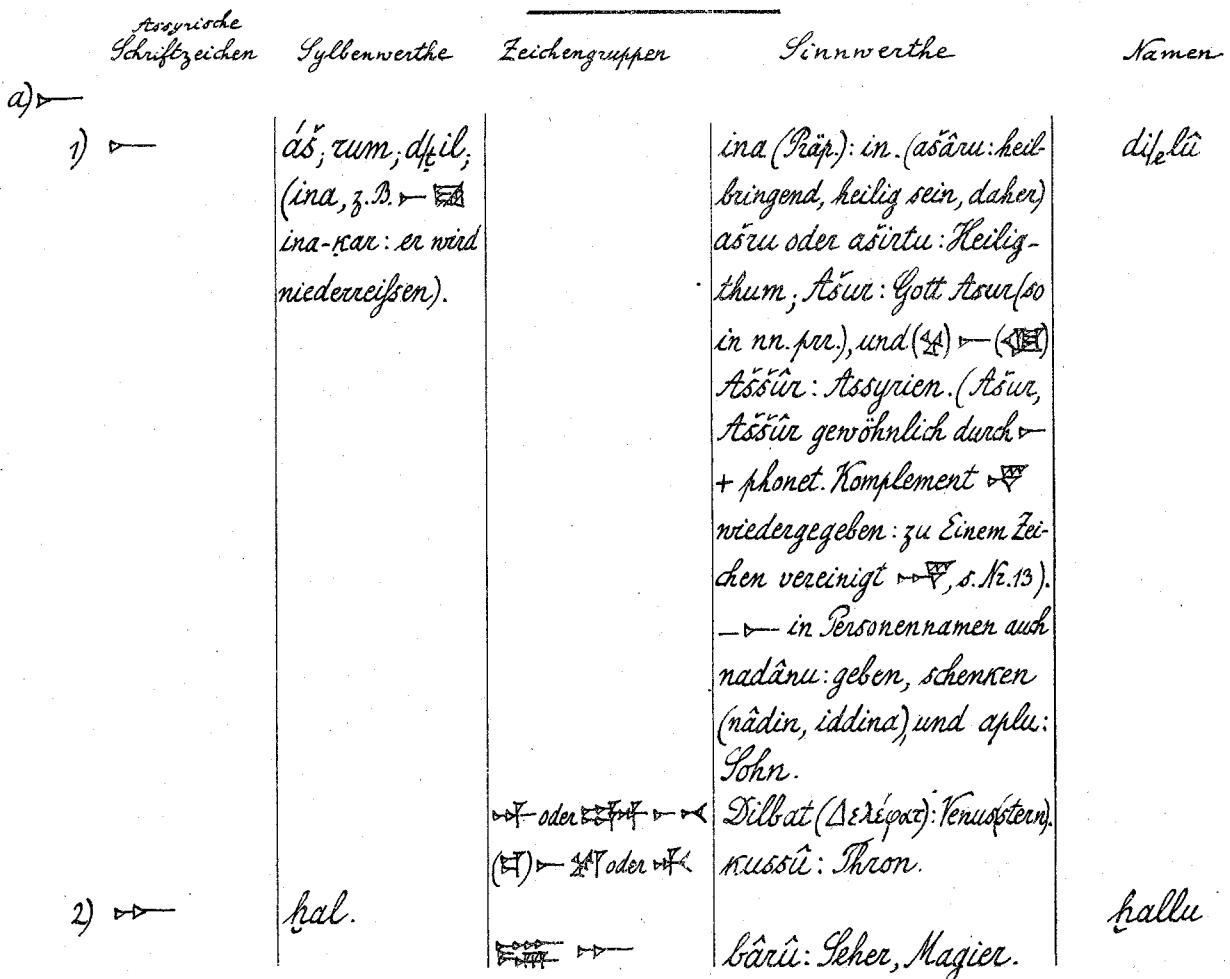 Assyrische
Schriftzeichen Sylbenwerthe Zeichengruppen Sinnwerthe Namen
a) 𒀸
1) 𒀸 áš; rum; d/ṭil; ina (Präp.): in. (ašâru: heil- di/elû
(ina, z.B. 𒀸 bringend, heilig sein, daher)
ina-ḳar: er wird ašru oder aširtu: Heilig-
niederreifsen). thum; Ašur: Gott Asur (so
in nn. prr.), und () 𒀸 ()
Aššûr: Assyrien. (Ašur,
Aššûr gewöhnlich durch 𒀸
+ phonet. Komplement
wiedergegeben: zu Einem Zei-
chen vereinigt , s. Nr. 13).
— 𒀸 in Personennamen auch
nadânu: geben, schenken
(nâdin, iddina), und aplu:
Sohn.
𒀭 oder 𒀸 𒁁 Dilbat (Δελέφατ): Venus(stern).
() 𒀸 oder kussû: Thron.
2) 𒄬 ḫal. ḫallu
𒄬 bârû: Seher, Magier.